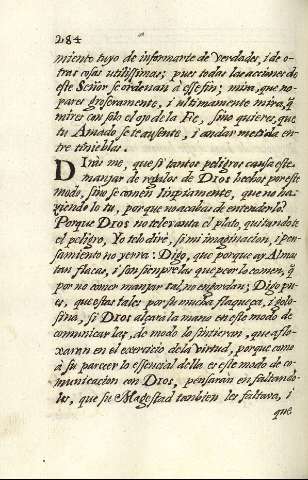 284
miento tuyo de informarte de verdades, i de o-
tras cosas utilissimas; pues todas las acciones de
este Señor se ordenan à esse fin; mira, que no
pares groseramente, i ultimamente mira, q̃
mires con solo el ojo de la Fe, sino quieres, que
tu Amado se te ausente, i andar metida en-
tre tinieblas.
Dirás me, que si tantos peligros causa este
manjar de regalos de Dios hechos por este
modo, sino se comen limpiamente, que no ha-
viendo lo tu, porque no acabas de entenderlo?
Porque Dios no te levanta el plato, quitandote
el peligro, Yo te lo diré, si mi imaginacion, i pen-
samiento no yerra: Digo, que porque ay Almas
tan flacas, i son siempre las que peor lo comen, q̃
por no comer manjar tal, no engordan; Digo pu-
es, que estas tales por su mucha flaqueça, i golo-
sina, si Dios alçara la mano en este modo de
comunicarlas, de modo lo sintieran, que aflo-
xaran en el exercicio de la virtud, porque como
à su parecer lo essencial della es este modo de co-
municacion con Dios, pensarán en faltando-
les, que su Magestad tambien les faltava, i
que